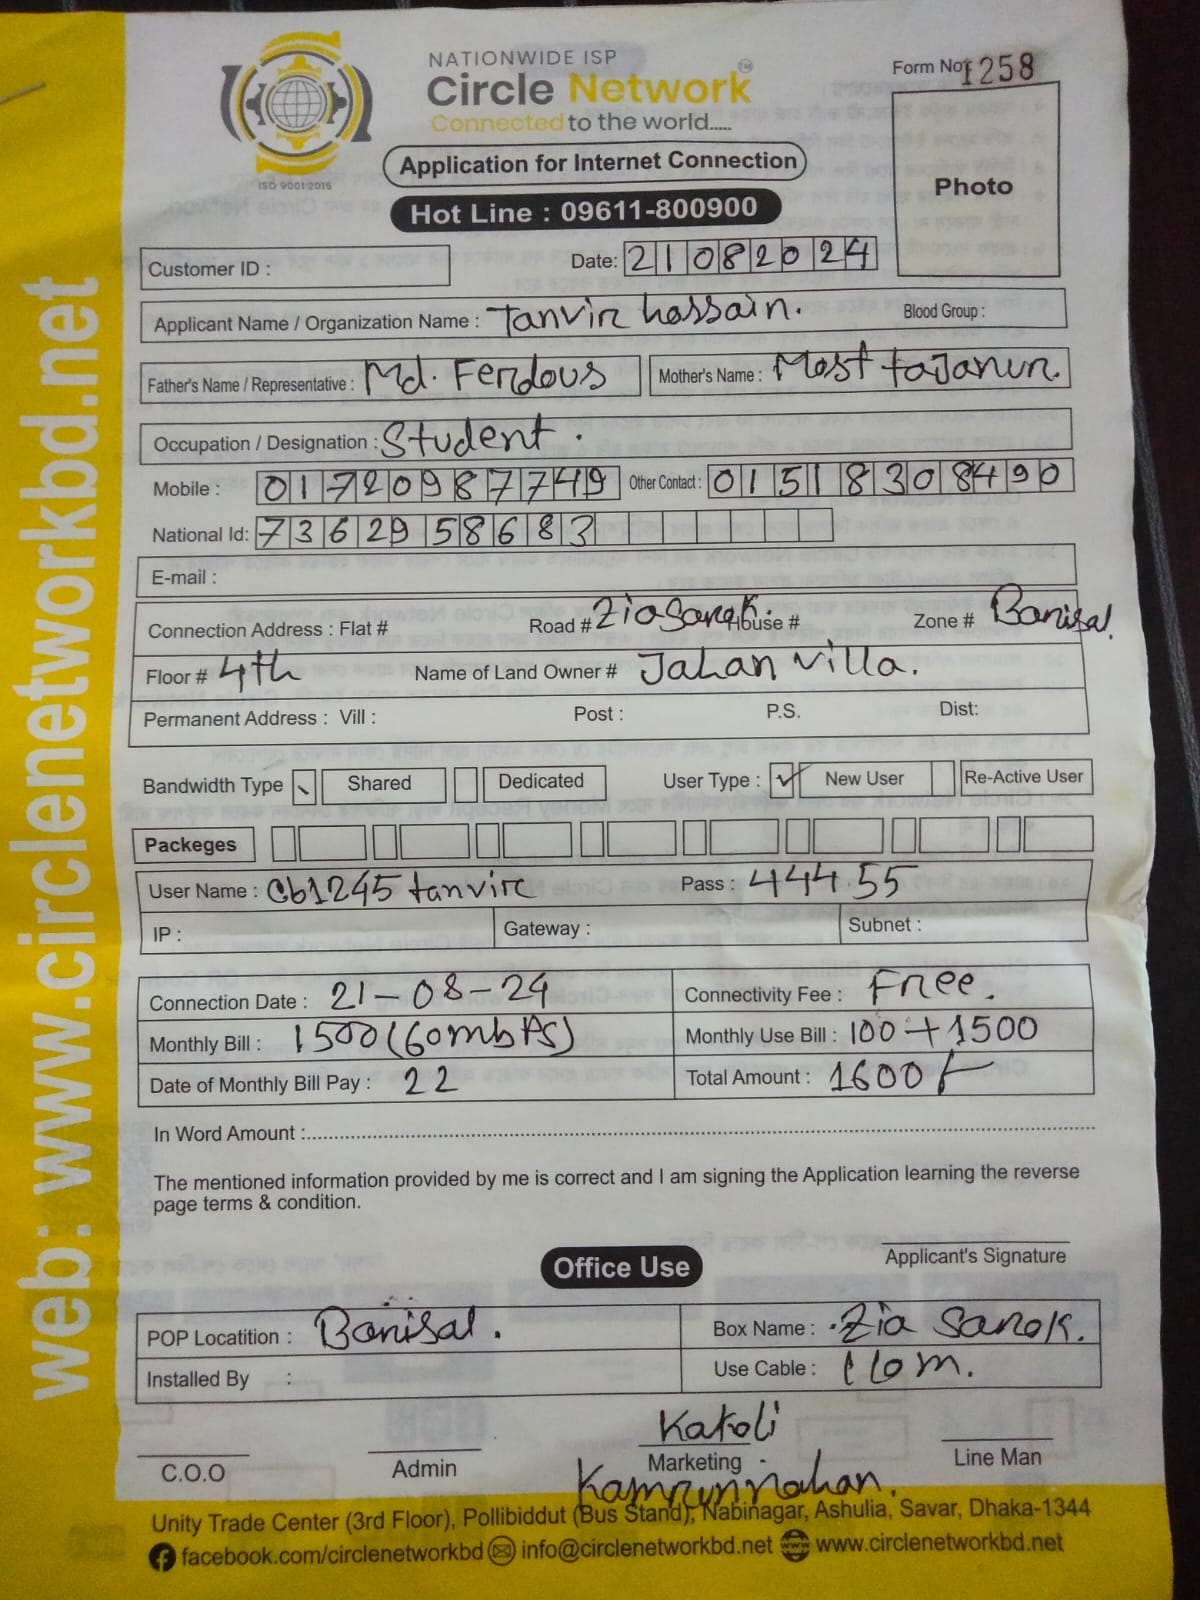 NATIONWIDE ISP
Circle Network™
Connected to the world.....
ISO 9001:2016
Form No: 1258
Photo
Application for Internet Connection
Hot Line : 09611-800900
Customer ID :
Date: 21082024
Applicant Name / Organization Name : Tanvir hossain.
Blood Group :
Father's Name / Representative : Md. Ferdous
Mother's Name : Most taJanur.
Occupation / Designation : Student.
Mobile : 01720987749 Other Contact : 01518308490
National Id: 7362958683
E-mail :
Connection Address : Flat # Road # Zia Sarok. House # Zone # Barisal.
Floor # 4th Name of Land Owner # Jahan villa.
Permanent Address : Vill : Post : P.S. Dist:
Bandwidth Type Shared Dedicated User Type : ✓ New User Re-Active User
Packeges
User Name : cb1245tanvir Pass : 444455
IP : Gateway : Subnet :
Connection Date : 21-08-24 Connectivity Fee : Free.
Monthly Bill : 1500(60mbps) Monthly Use Bill : 100+1500
Date of Monthly Bill Pay : 22 Total Amount : 1600/-
In Word Amount :
The mentioned information provided by me is correct and I am signing the Application learning the reverse
page terms & condition.
Applicant's Signature
Office Use
POP Locatition : Barisal. Box Name : Zia Sarok.
Installed By : Use Cable : 110m.
Katoli
C.O.O Admin Marketing Line Man
Kamrunnahar.
Unity Trade Center (3rd Floor), Pollibiddut (Bus Stand), Nabinagar, Ashulia, Savar, Dhaka-1344
facebook.com/circlenetworkbd info@circlenetworkbd.net www.circlenetworkbd.net
web: www.circlenetworkbd.net